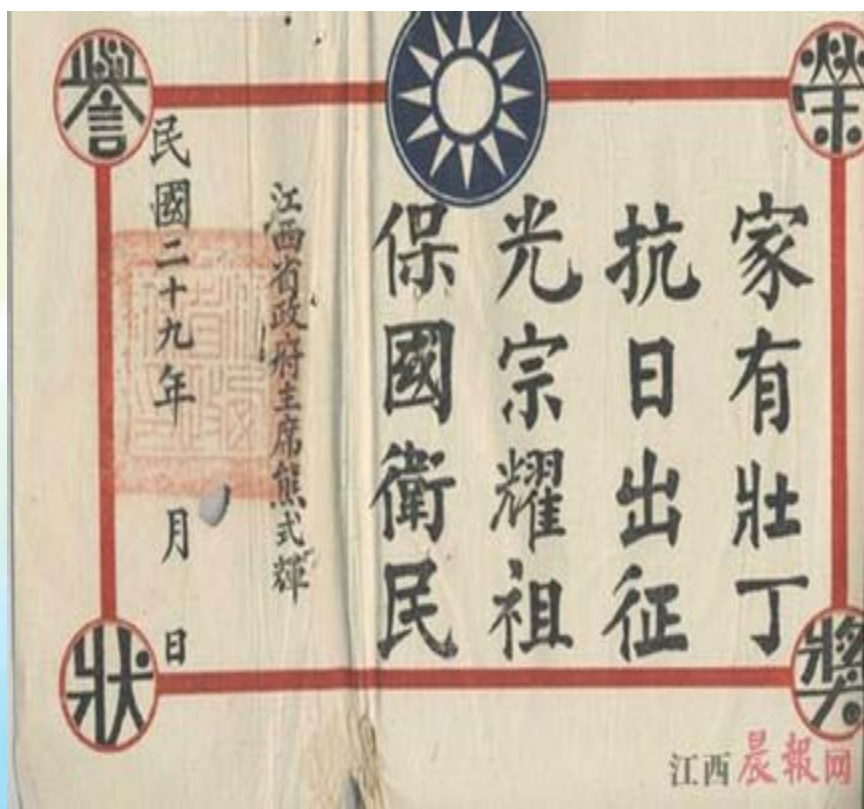 榮譽
家有壯丁
抗日出征
光宗耀祖
保國衛民
江西省政府主席熊式輝
民國二十九年 月 日
獎狀
江西晨報网